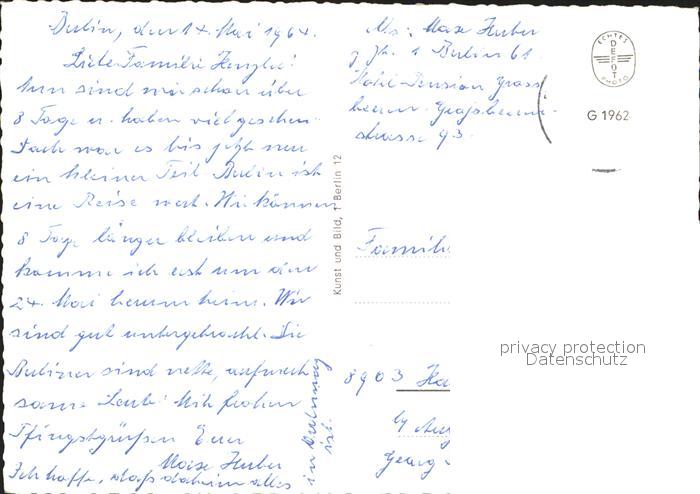 Berlin, den 14. Mai 1964.
Liebe Familie
Nun sind wir schon über
8 Tage u. haben viel gesehen.
Doch war es bis jetzt nur
ein kleiner Teil. Berlin ist
eine Reise wert. Wir können
8 Tage länger bleiben und
komme ich erst um den
24. Mai herum heim. Wir
sind gut untergebracht. Die
Berliner sind nette, aufmerk
same Leute. Mit frohen
Pfingstgrüßen Euer
Max Huber
Ich hoffe, daß daheim alles
in Ordnung
ist.
Kunst und Bild, 1 Berlin 12
Abs: Max Huber
z. Zt. 1 Berlin 61
Hotel-Pension Gross
beeren Großbeeren-
strasse 93.
ECHTES
DEFOT
PHOTO
G 1962
Famili
8903
by
Georg
privacy protection
Datenschutz